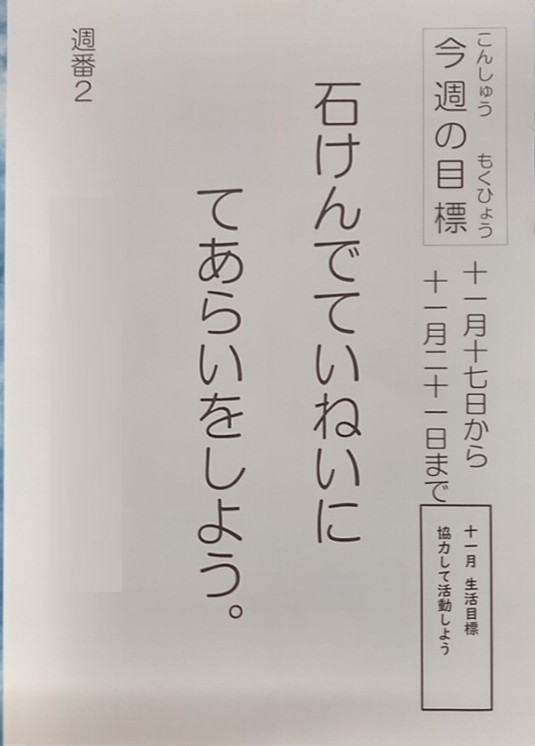 こんしゅう もくひょう
今週の目標
十一月十七日から
十一月二十一日まで
十一月 生活目標
協力して活動しよう
石けんでていねいに
てあらいをしよう。
週番2